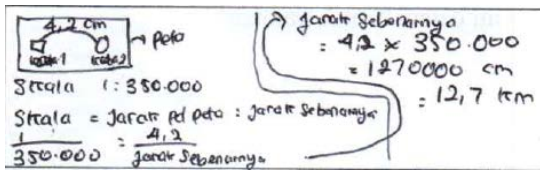 4,2 cm
kota 1 kota 2
Peta
Skala 1 : 350.000
Skala = Jarak pd peta : Jarak Sebenarnya
1 / 350.000 = 4,2 / Jarak Sebenarnya
Jarak Sebenarnya
= 4,2 x 350.000
= 1270000 cm
= 12,7 km